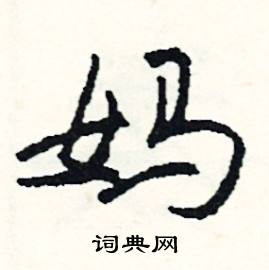 妈
词典网